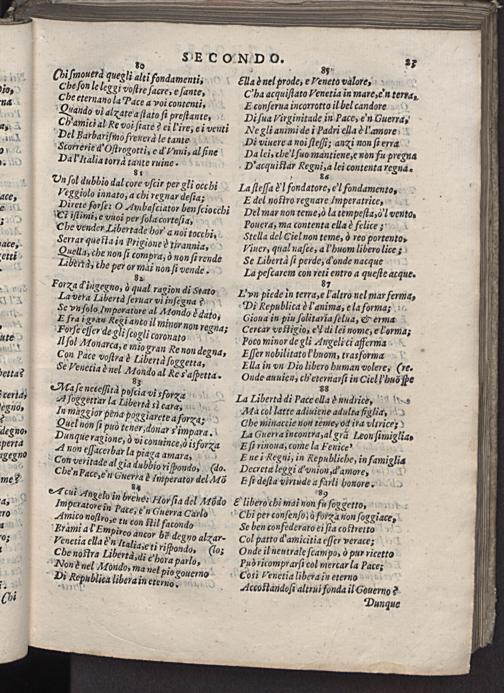 SECONDO. 23
80
Chi smouerà quegli alti fondamenti,
Che son le leggi vostre sacre, e sante,
Che eternano la Pace a voi contenti,
Quando vi alzate a stato sì prestante,
Ch'amici al Re voi siate è ei l'ire, e i venti
Del Barbarismo frenerà le tante
Scorrerie d'Ostrogotti, e d'Vnni, al fine
Da l'Italia torrà tante ruine.
81
Vn sol dubbio dal core vscir per gli occhi
Veggiolo innato, a chi regnar desia;
Direte forse: O Ambasciator ben sciocchi
Ci istimi, e vuoi per sola cortesia,
Che vender Libertade hor' a noi tocchi,
Serrar questa in Prigione è tirannia,
Quella, che non si compra, ò non si rende
Libertà, che per or mai non si vende.
82
Forza d'ingegno, ò qual ragion di Stato
La vera Libertà seruar vi insegna?
Se vn solo Imperatore al Mondo è dato,
E fra i gran Regi anto il minor non regna;
Forse esser de gli scogli coronato
Il sol Monarca, e mio gran Re non degna,
Con Pace vostra è Libertà soggetta,
Se Venetia è nel Mondo al Re s'aspetta.
83
Ma se necessità poscia vi sforza
A soggettar la Libertà sì cara,
In maggior pena poggiarete a forza;
Quel non si può tener, donar s'impara.
Dunque ragione, ò vi conuince, ò isforza
A non essacerbar la piaga amara,
Con veritade al già dubbio rispondo, (do.
Che'n Pace, e'n Guerra è Imperator del Mō
84
A cui Angelo in breue: Hor sia del Mōdo
Imperatore in Pace, e'n Guerra Carlo
Amico nostro, e tu con stil facondo
Brami a l'Empireo ancor bē degno alzar-
Venetia ella è'n Italia, e ti rispondo, (lo;
Che nostra Libertà, di c'hora parlo,
Non è nel Mondo, ma nel pio gouerno
Di Republica libera in eterno.
Chi
85
Ella è nel prode, e Veneto valore,
C'ha acquistato Venetia in mare, e'n terra,
E conserua incorrotto il bel candore
Di sua Virginitade in Pace, e'n Guerra,
Ne gli animi de i Padri ella è l'amore
Di viuere a noi stessi; anzi non si erra
Da lei, che'l suo mantiene, e non fu pregna
D'acquistar Regni, a lei contenta regna.
86
La stessa è'l fondatore, e'l fondamento,
E del nostro regnare Imperatrice,
Del mar non teme, ò la tempesta, ò'l vento,
Pouera, ma contenta ella è felice;
Stella del Ciel non teme, ò reo portento,
Viuer, qual nasce, a l'huom libero lice;
Se Libertà si perde, d'onde nacque
La pescarem con reti entro a queste acque.
87
L'vn piede in terra, e l'altro nel mar ferma,
Di Republica è l'anima, e la forma;
Gioua in piu solitaria selua, & erma
Cercar vestigio, e'l di lei nome, e l'orma;
Poco minor de gli Angeli ci afferma
Esser nobilitato l'huom, trasforma
Ella in vn Dio libero human volere, (re.
Onde auuien, ch'eternarsi in Ciel l'huō spe
88
La Libertà di Pace ella è nudrice,
Ma col latte adiuiene adulta figlia,
Che minaccie non teme, od ira vltrice;
La Guerra incontra, al grā Leon simiglia,
E si rinoua, come la Fenice
E ne i Regni, in Republiche, in famiglia
Decreta leggi d'vnion, d'amore,
E si desta virtude a farli honore.
89
E libero chi mai non fu soggetto,
Chi per consenso, ò forza non soggiace,
Se ben confederato ei sia costretto
Col patto d'amicitia esser verace;
Onde il neutrale scampo, ò pur ricetto
Può ricomprarsi col mercar la Pace;
Così Venetia libera in eterno
Accostandosi altrui fonda il Gouerno?
Dunque